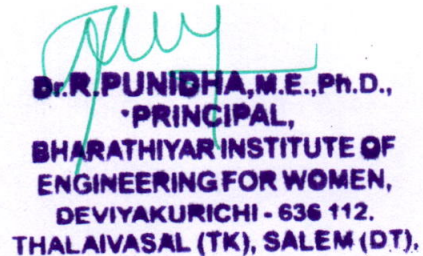 Dr.R.PUNIDHA,M.E.,Ph.D.,
PRINCIPAL,
BHARATHIYAR INSTITUTE OF
ENGINEERING FOR WOMEN,
DEVIYAKURICHI - 636 112.
THALAIVASAL (TK), SALEM (DT),